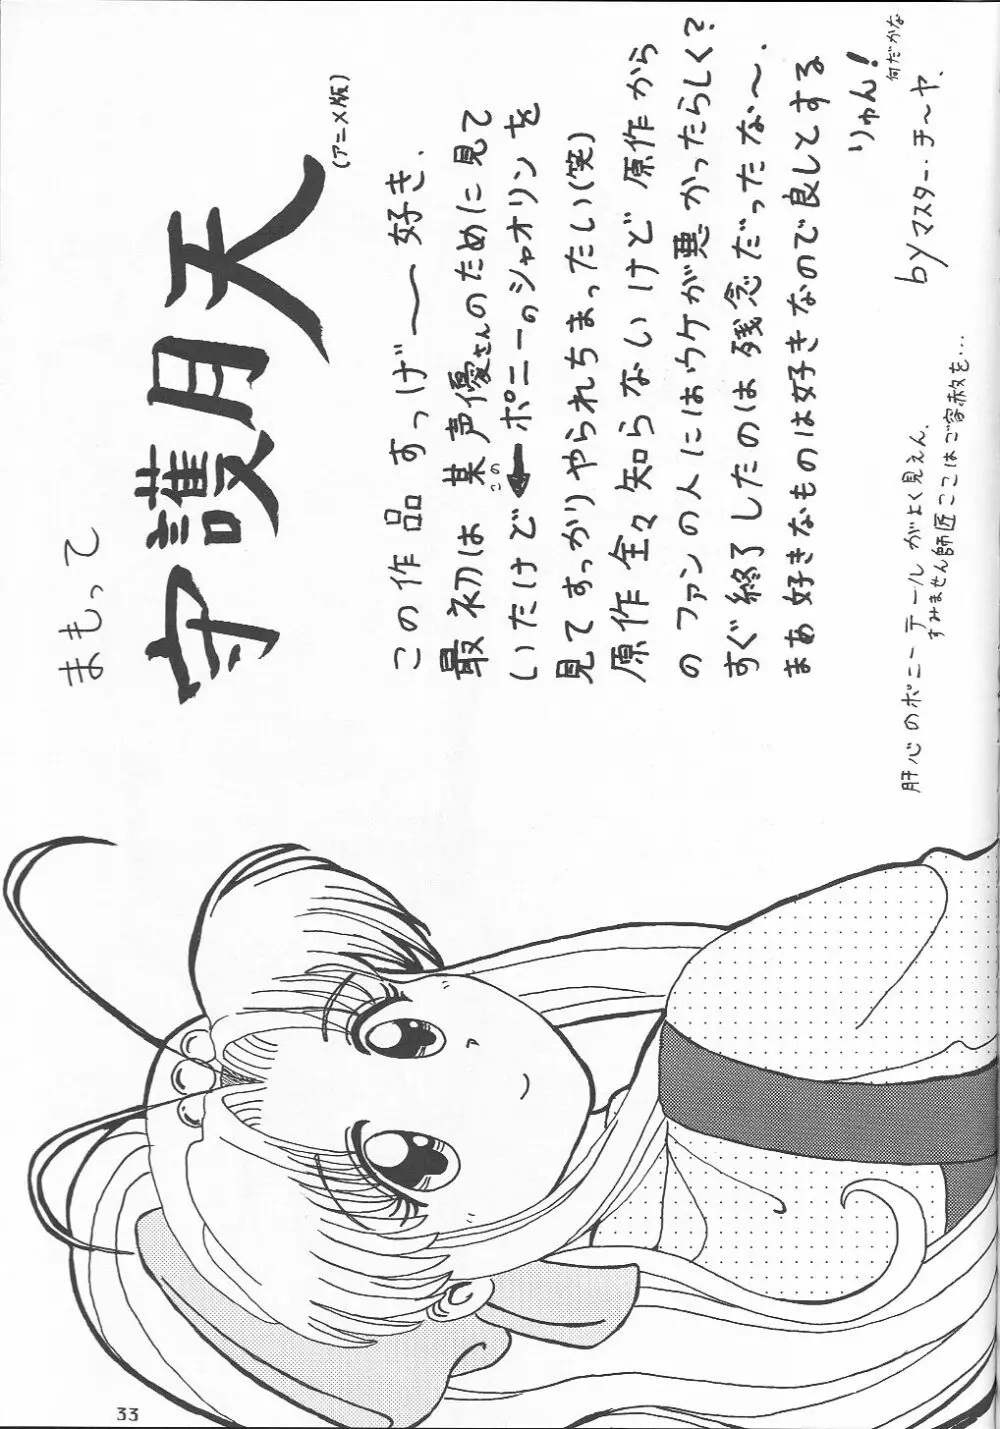 まもって
守護月天
(アニメ版)
この作品すっげ〜好き.
最初は某声優さんのために見て
いたけど←ポニーのシャオリンを
この
見てすっかりやられちまったしい(笑)
原作全々知らないけど原作から
のファンの人にはウケが悪かったらしく?
すぐ終了したのは残念だったな〜.
まあ好きなものは好きなので良しとする
りゅん!
何だかな
byマスター・チ〜ヤ、
肝心のポニーテールがよく見えん、
すみません師匠ここはご容赦を…
33